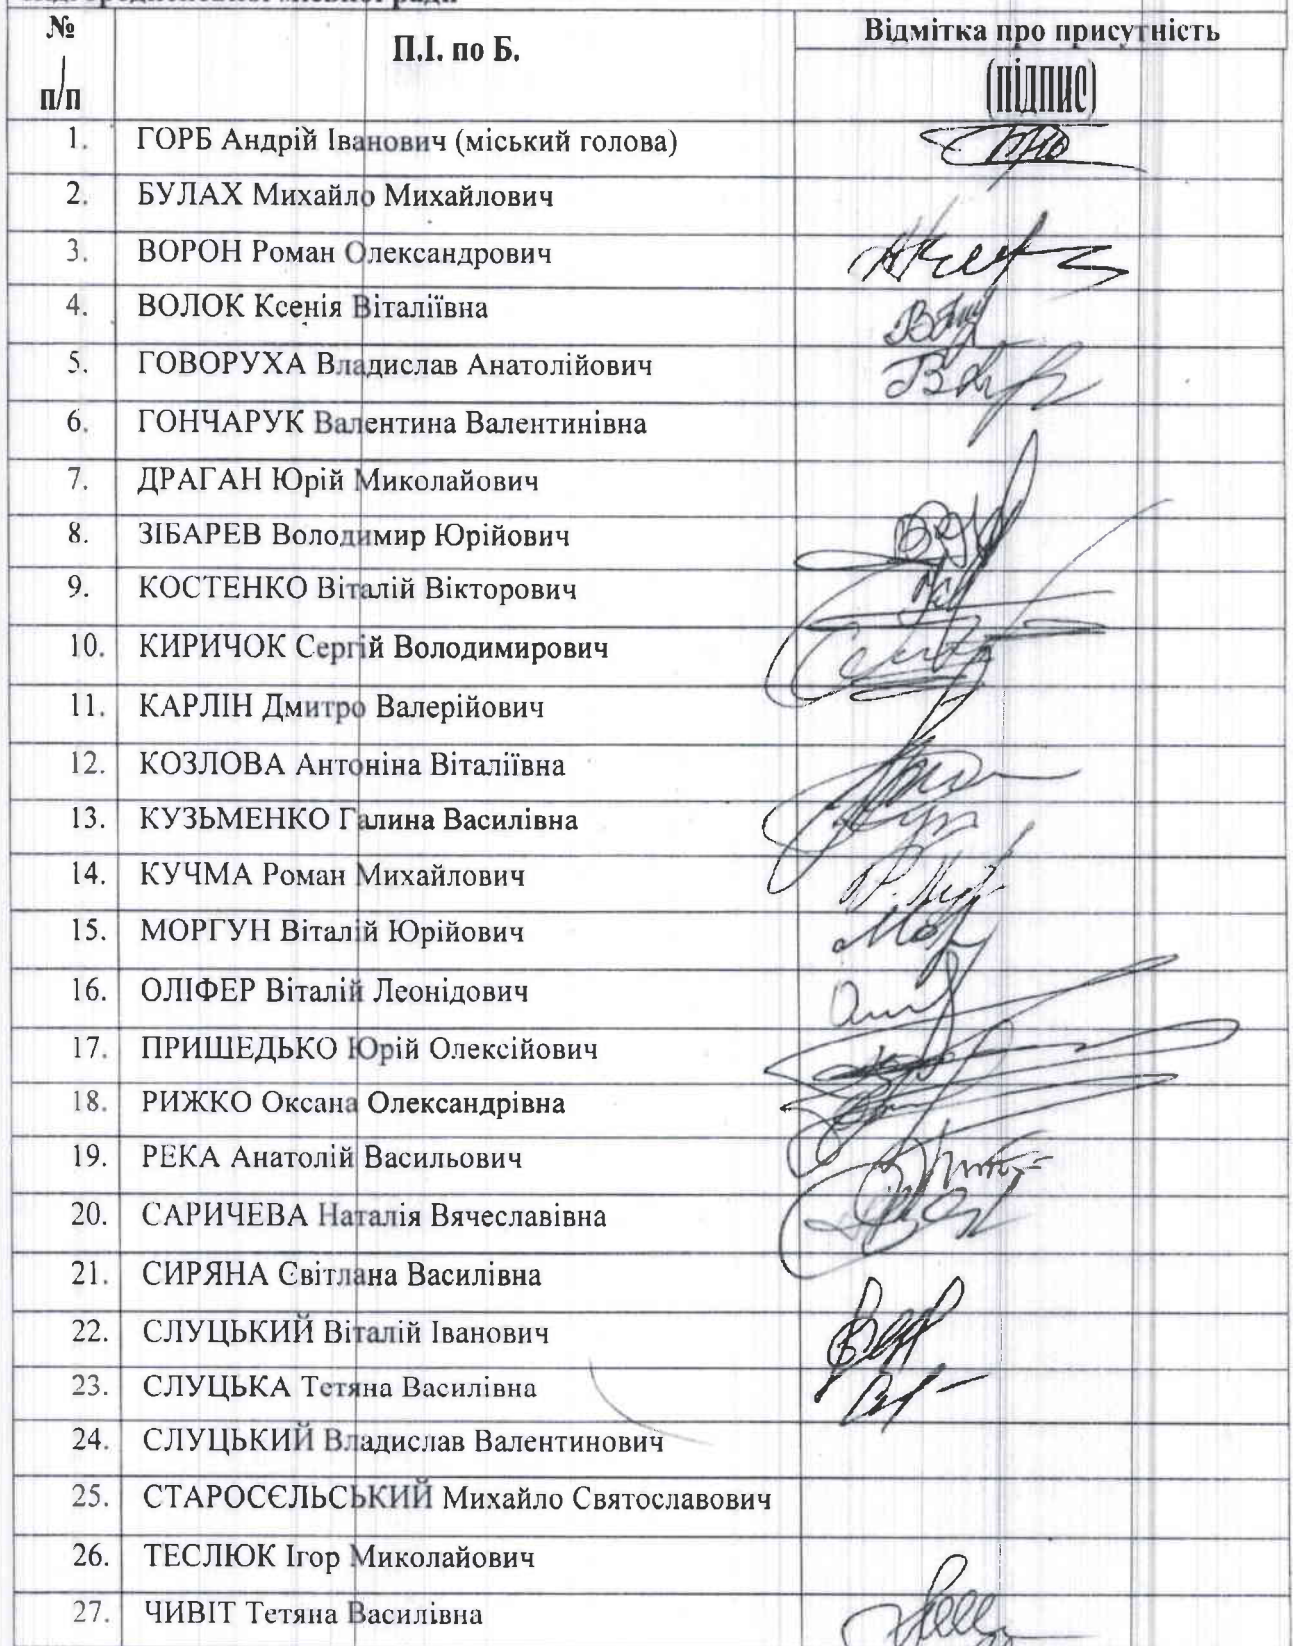 № п/п П.І. по Б. Відмітка про присутність (підпис)
1. ГОРБ Андрій Іванович (міський голова)
2. БУЛАХ Михайло Михайлович
3. ВОРОН Роман Олександрович
4. ВОЛОК Ксенія Віталіївна
5. ГОВОРУХА Владислав Анатолійович
6. ГОНЧАРУК Валентина Валентинівна
7. ДРАГАН Юрій Миколайович
8. ЗІБАРЕВ Володимир Юрійович
9. КОСТЕНКО Віталій Вікторович
10. КИРИЧОК Сергій Володимирович
11. КАРЛІН Дмитро Валерійович
12. КОЗЛОВА Антоніна Віталіївна
13. КУЗЬМЕНКО Галина Василівна
14. КУЧМА Роман Михайлович
15. МОРГУН Віталій Юрійович
16. ОЛІФЕР Віталій Леонідович
17. ПРИШЕДЬКО Юрій Олексійович
18. РИЖКО Оксана Олександрівна
19. РЕКА Анатолій Васильович
20. САРИЧЕВА Наталія Вячеславівна
21. СИРЯНА Світлана Василівна
22. СЛУЦЬКИЙ Віталій Іванович
23. СЛУЦЬКА Тетяна Василівна
24. СЛУЦЬКИЙ Владислав Валентинович
25. СТАРОСЄЛЬСЬКИЙ Михайло Святославович
26. ТЕСЛЮК Ігор Миколайович
27. ЧИВІТ Тетяна Василівна